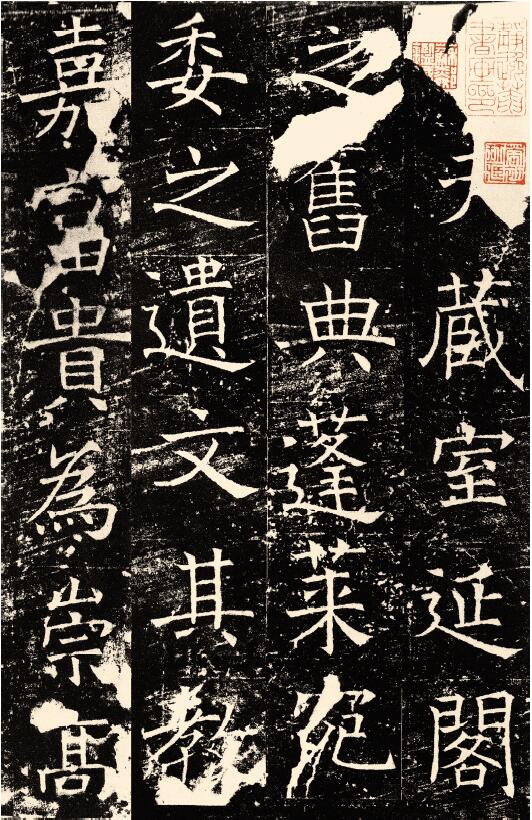 夫藏室延閣
之舊典蓬萊宛
委之遺文其教
嘉富貴為崇高